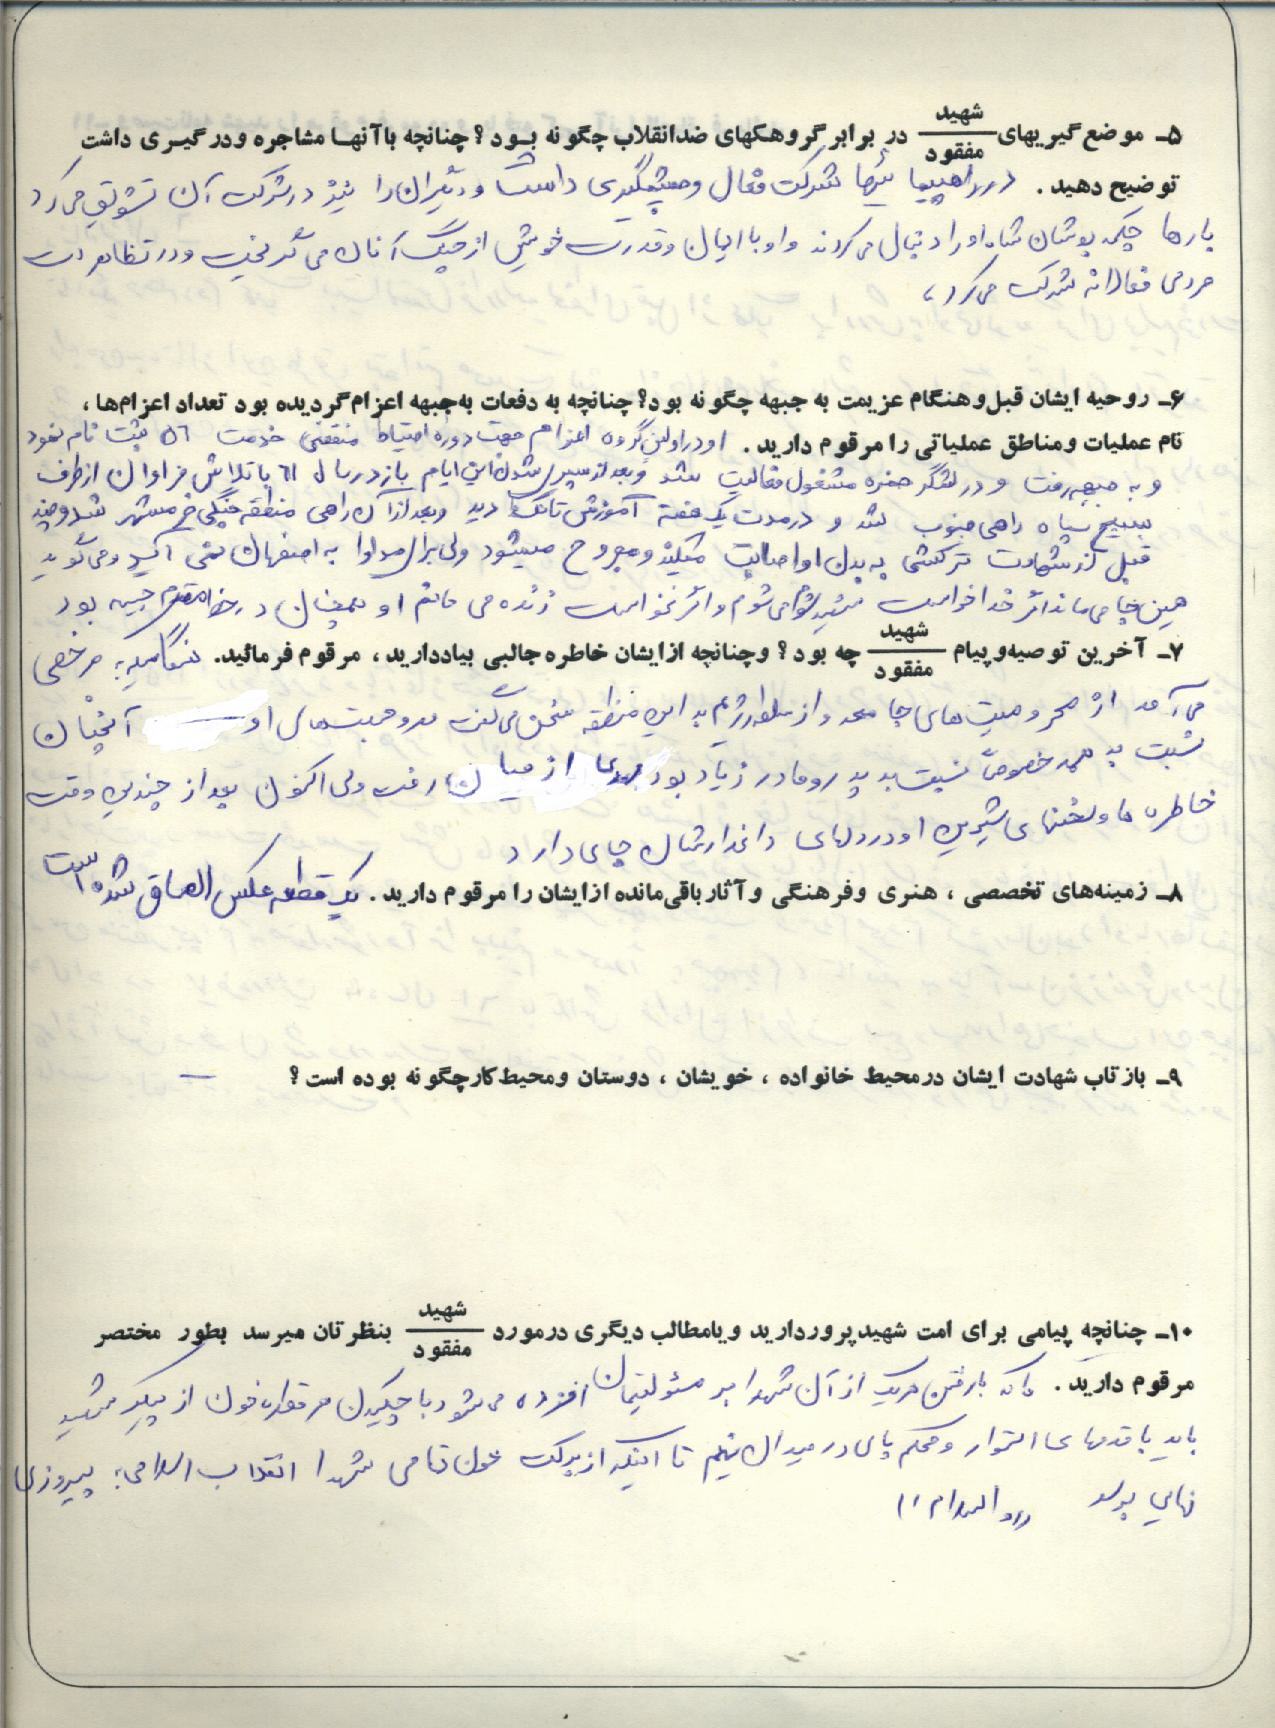 ۵ـ موضع‌گیریهای شهید/مفقود در برابر گروهکهای ضدانقلاب چگونه بود؟ چنانچه با آنها مشاجره و درگیری داشت
توضیح دهید. در راهپیمایی‌ها شرکت فعال و چشمگیری داشت و دیگران را نیز در شرکت آن تشویق می‌کرد
بارها چکمه پوشان شاه او را دنبال می‌کردند و او با ایمان و قدرت خویش از چنگ آنان می‌گریخت و در تظاهرات
مردمی فعالانه شرکت می‌کرد،
۶ـ روحیه ایشان قبل و هنگام عزیمت به جبهه چگونه بود؟ چنانچه به دفعات به‌جبهه اعزام گردیده بود تعداد اعزام‌ها،
نام عملیات و مناطق عملیاتی را مرقوم دارید. او در اولین گروه اعزام جهت دوره احتیاط منقضی خدمت ۵۶ ثبت نام نمود
و به جبهه رفت و در لشگر حمزه مشغول فعالیت شد و بعد از سپری شدن این ایام باز در سال ۶۱ با تلاش فراوان از طرف
بسیج سپاه راهی جنوب شد و در مدت یک هفته آموزش تانک دید و بعد از آن راهی منطقه جنگی خرمشهر شد و چند
قبل از شهادت ترکشی به بدن او اصابت میکند و مجروح میشود ولی برای مداوا به اصفهان نمی آید و می‌گوید
همین جا می‌مانم اگر خدا خواست شهید می‌شوم و اگر نخواست زنده می مانم او همچنان در خط مقدم جبهه بود
۷ـ آخرین توصیه و پیام شهید/مفقود چه بود؟ و چنانچه از ایشان خاطره جالبی بیاد دارید، مرقوم فرمائید. هنگامیکه به مرخصی
می‌آمد از محرومیت‌های جامعه و از رژیم به این منطقه سخن می‌گفت محبت‌های او آنچنان
نسبت به همه خصوصاً نسبت به پدر و مادر زیاد بود از میان رفت ولی اکنون بعد از چندین وقت
خاطره ها و سخنهای شیرین او در دلهای داغدارشان جای دارد
۸ـ زمینه‌های تخصصی، هنری و فرهنگی و آثار باقی‌مانده از ایشان را مرقوم دارید. یک قطعه عکس الصاق شده است
۹ـ بازتاب شهادت ایشان در محیط خانواده، خویشان، دوستان و محیط کار چگونه بوده است؟ —
۱۰ـ چنانچه پیامی برای امت شهیدپرور دارید و یا مطالب دیگری در مورد شهید/مفقود بنظرتان میرسد بطور مختصر
مرقوم دارید. ما که با رفتن هریک از آن شهدا بر مسئولیتمان افزوده می‌شود با چکیدن هر قطره خون از پیکر شهید
باید با قدمهای استوار و محکم پای در میدان نهیم تا اینکه از برکت خون تمامی شهدا انقلاب اسلامی به پیروزی
نهایی برسد «والسلام»